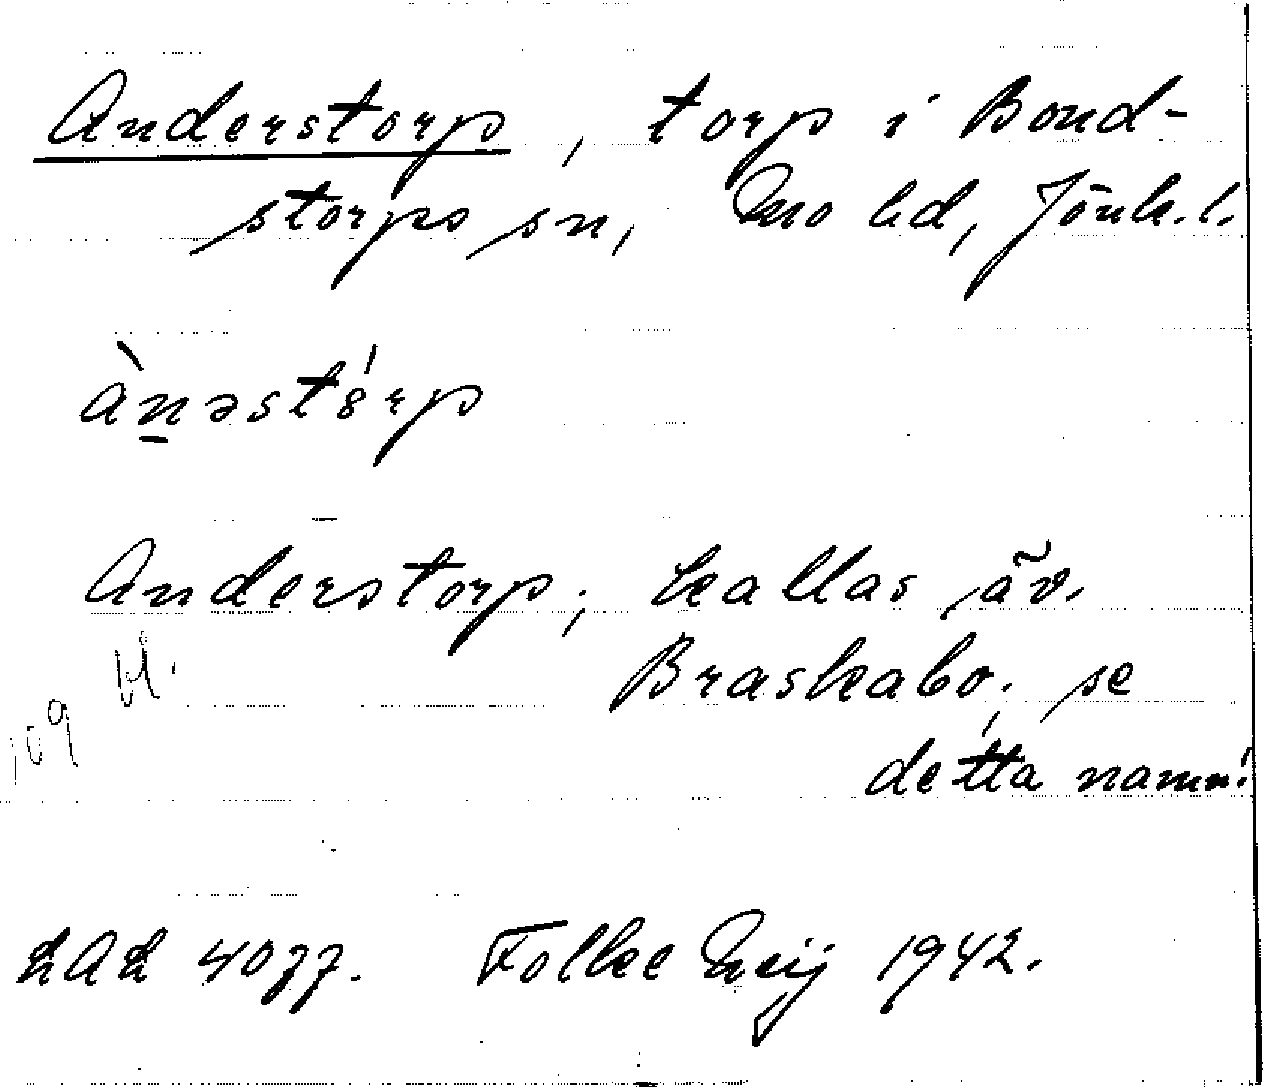 Anderstorp, torp i Bond-
storps sn, Mo hd, Jönk. l.
ànəstórp
Anderstorp; kallas äv.
Braskabo; se
detta namn!
109 U.
LAL 4077. Folke Meij 1942.